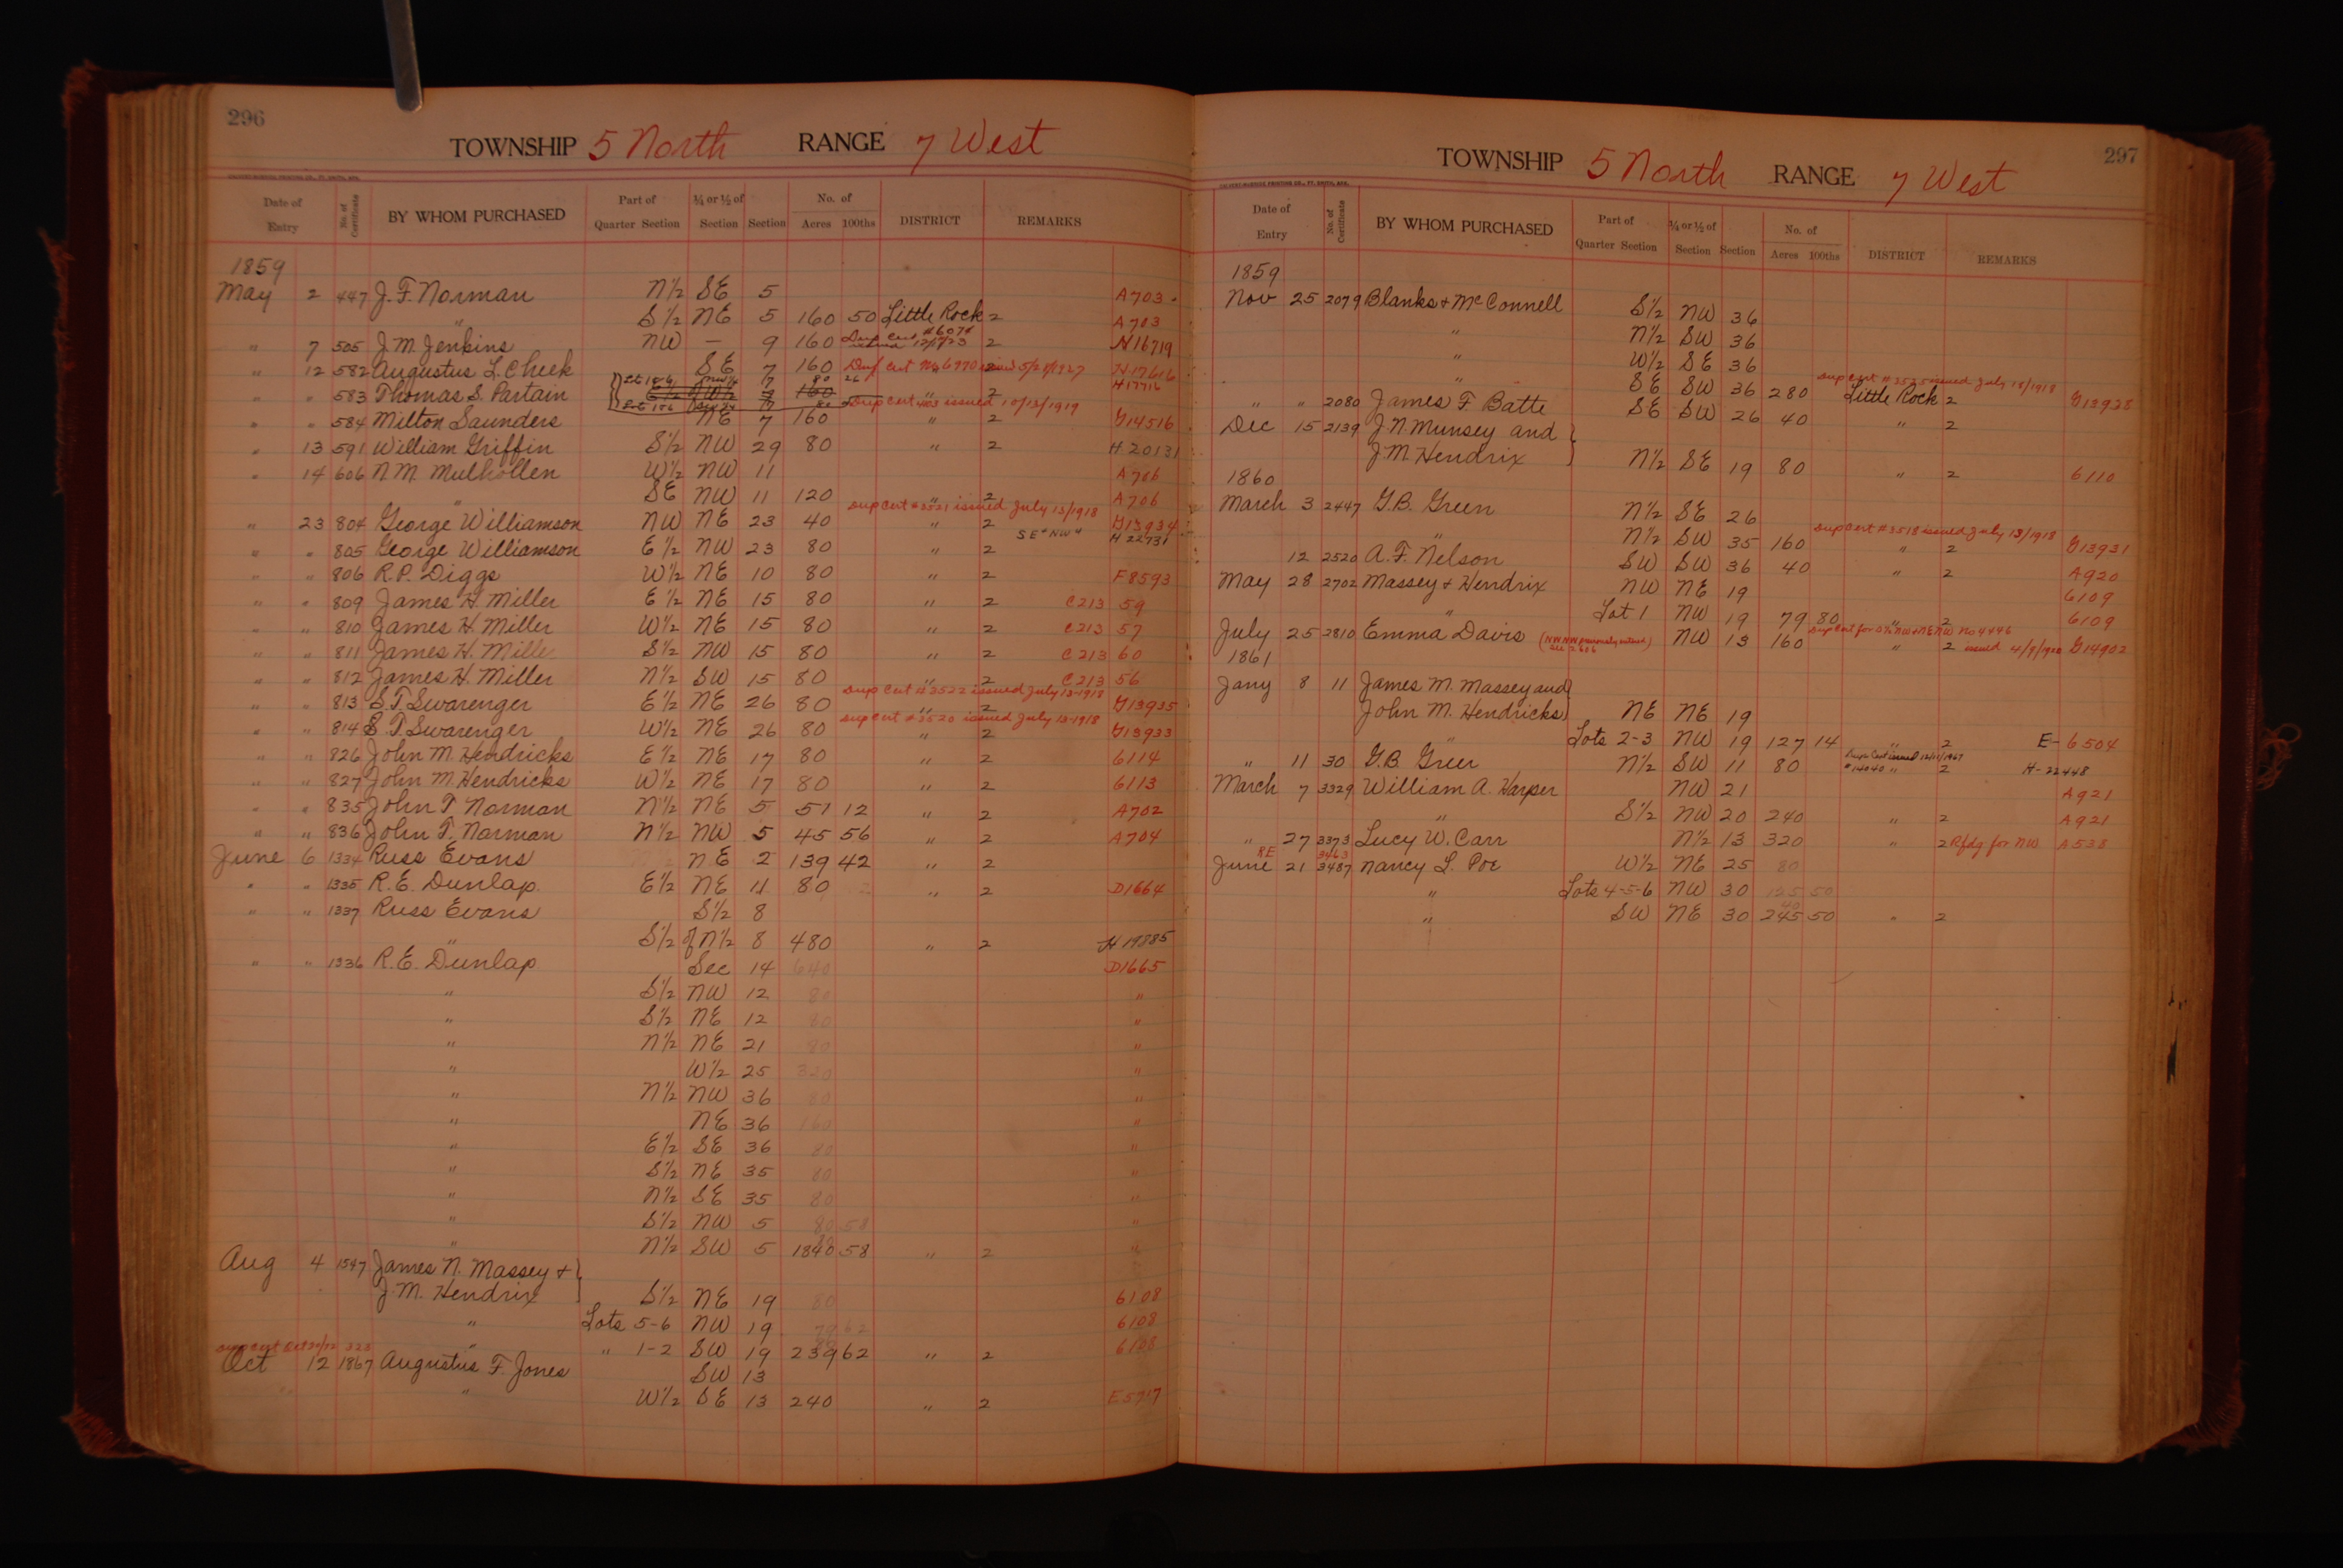 296
TOWNSHIP 5 North RANGE 7 West
Date of Entry No. of Certificate BY WHOM PURCHASED Part of Quarter Section ¼ or ½ of Section Section No. of Acres 100ths DISTRICT REMARKS
1859
May 2 447 J. F. Norman N½ SE 5 A703
" S½ NE 5 160 50 Little Rock 2 A703
" 7 505 J. M. Jenkins NW — 9 160 Dup Cert #6074 issued 12/5/23 2 N16719
" 12 582 Augustus L. Cheek SE 7 160 Dup cert No 6970 issued 5/28/1927 N17616
" " 583 Thomas S. Partain 7 160 2 H17716
" " 584 Milton Saunders NE 7 160 Dup cert issued 10/13/1919 " 2 G14516
" 13 591 William Griffin S½ NW 29 80 " 2 H 20131
" 14 606 N. M. Mulhollen W½ NW 11 A706
" SE NW 11 120 " 2 A706
" 23 804 George Williamson NW NE 23 40 Dup Cert #3521 issued July 13/1918 " 2 G13934
" " 805 George Williamson E½ NW 23 80 " 2 SE "NW" H 22731
" " 806 R. P. Diggs W½ NE 10 80 " 2 F8593
" " 809 James H. Miller E½ NE 15 80 " 2 C213 59
" " 810 James H. Miller W½ NE 15 80 " 2 C213 57
" " 811 James H. Mille S½ NW 15 80 " 2 C213 60
" " 812 James H. Miller N½ SW 15 80 " 2 C213 56
" " 813 S. T. Swarenger E½ NE 26 80 Dup Cert #3522 issued July 13-1918 " 2 G13935
" " 814 S. T. Swarenger W½ NE 26 80 Dup Cert #3520 issued July 13-1918 " 2 G13933
" " 826 John M. Hendricks E½ NE 17 80 " 2 6114
" " 827 John M. Hendricks W½ NE 17 80 " 2 6113
" " 835 John T. Norman N½ NE 5 51 12 " 2 A702
" " 836 John T. Norman N½ NW 5 45 56 " 2 A704
June 6 1334 Russ Evans NE 2 139 42 " 2
" " 1335 R. E. Dunlap E½ NE 11 80 " 2 D1664
" " 1337 Russ Evans S½ 8
" S½ of N½ 8 480 " 2 H 19885
" " 1336 R. E. Dunlap Sec 14 640 D1665
" S½ NW 12 80 "
" S½ NE 12 80 "
" N½ NE 21 80 "
" W½ 25 320 "
" N½ NW 36 80 "
" NE 36 160 "
" E½ SE 36 80 "
" S½ NE 35 80 "
" N½ SE 35 80 "
" S½ NW 5 80 58 "
" N½ SW 5 1840 58 " 2 "
Aug 4 1547 James N. Massey +
J. M. Hendrix S½ NE 19 80 6108
" Lots 5-6 NW 19 79 62 6108
" " 1-2 SW 19 239 62 " 2 6108
Dup Cert 323
Oct 12 1867 Augustus F. Jones SW 13
" " W½ SE 13 240 " 2 E5717
297
TOWNSHIP 5 North RANGE 7 West
Date of Entry No. of Certificate BY WHOM PURCHASED Part of Quarter Section ¼ or ½ of Section Section No. of Acres 100ths DISTRICT REMARKS
1859
Nov 25 2079 Blanks + McConnell S½ NW 36
" N½ SW 36
" W½ SE 36
" SE SW 36 280 Dup Cert #3525 issued July 18/1918 Little Rock 2 G13928
" " 2080 James F Batte SE SW 26 40 " 2
Dec 15 2139 J. N. Munsey and
J. M. Hendrix N½ SE 19 80 " 2 6110
1860
March 3 2447 G. B. Green N½ SE 26
" N½ SW 35 160 Dup Cert #3518 issued July 13/1918 " 2 G13931
12 2520 A. F. Nelson SW SW 36 40 " 2 A920
May 28 2702 Massey + Hendrix NW NE 19 6109
" Lot 1 NW 19 79 80 " 2 6109
July 25 2810 Emma Davis NW 13 160 Dup Cert for S½ NW + NE NW No 4446 issued 4/8/1922 " 2 G14902
1861
Jany 8 11 James M. Massey and
John M. Hendricks NE NE 19
" Lots 2-3 NW 19 127 14 " 2 E-6504
" 11 30 G. B Green N½ SW 11 80 Dup Cert issued 12/11/1967 #14040 " 2 H-22448
March 7 3329 William A. Harper NW 21 A921
" S½ NW 20 240 " 2 A921
" 27 3373 Lucy W. Carr N½ 13 320 " 2 Rfdg for NW A538
RE 3463
June 21 3487 Nancy L. Poe W½ NE 25 80
" Lots 4-5-6 NW 30 125 50
" SW NE 30 245 50 " 2